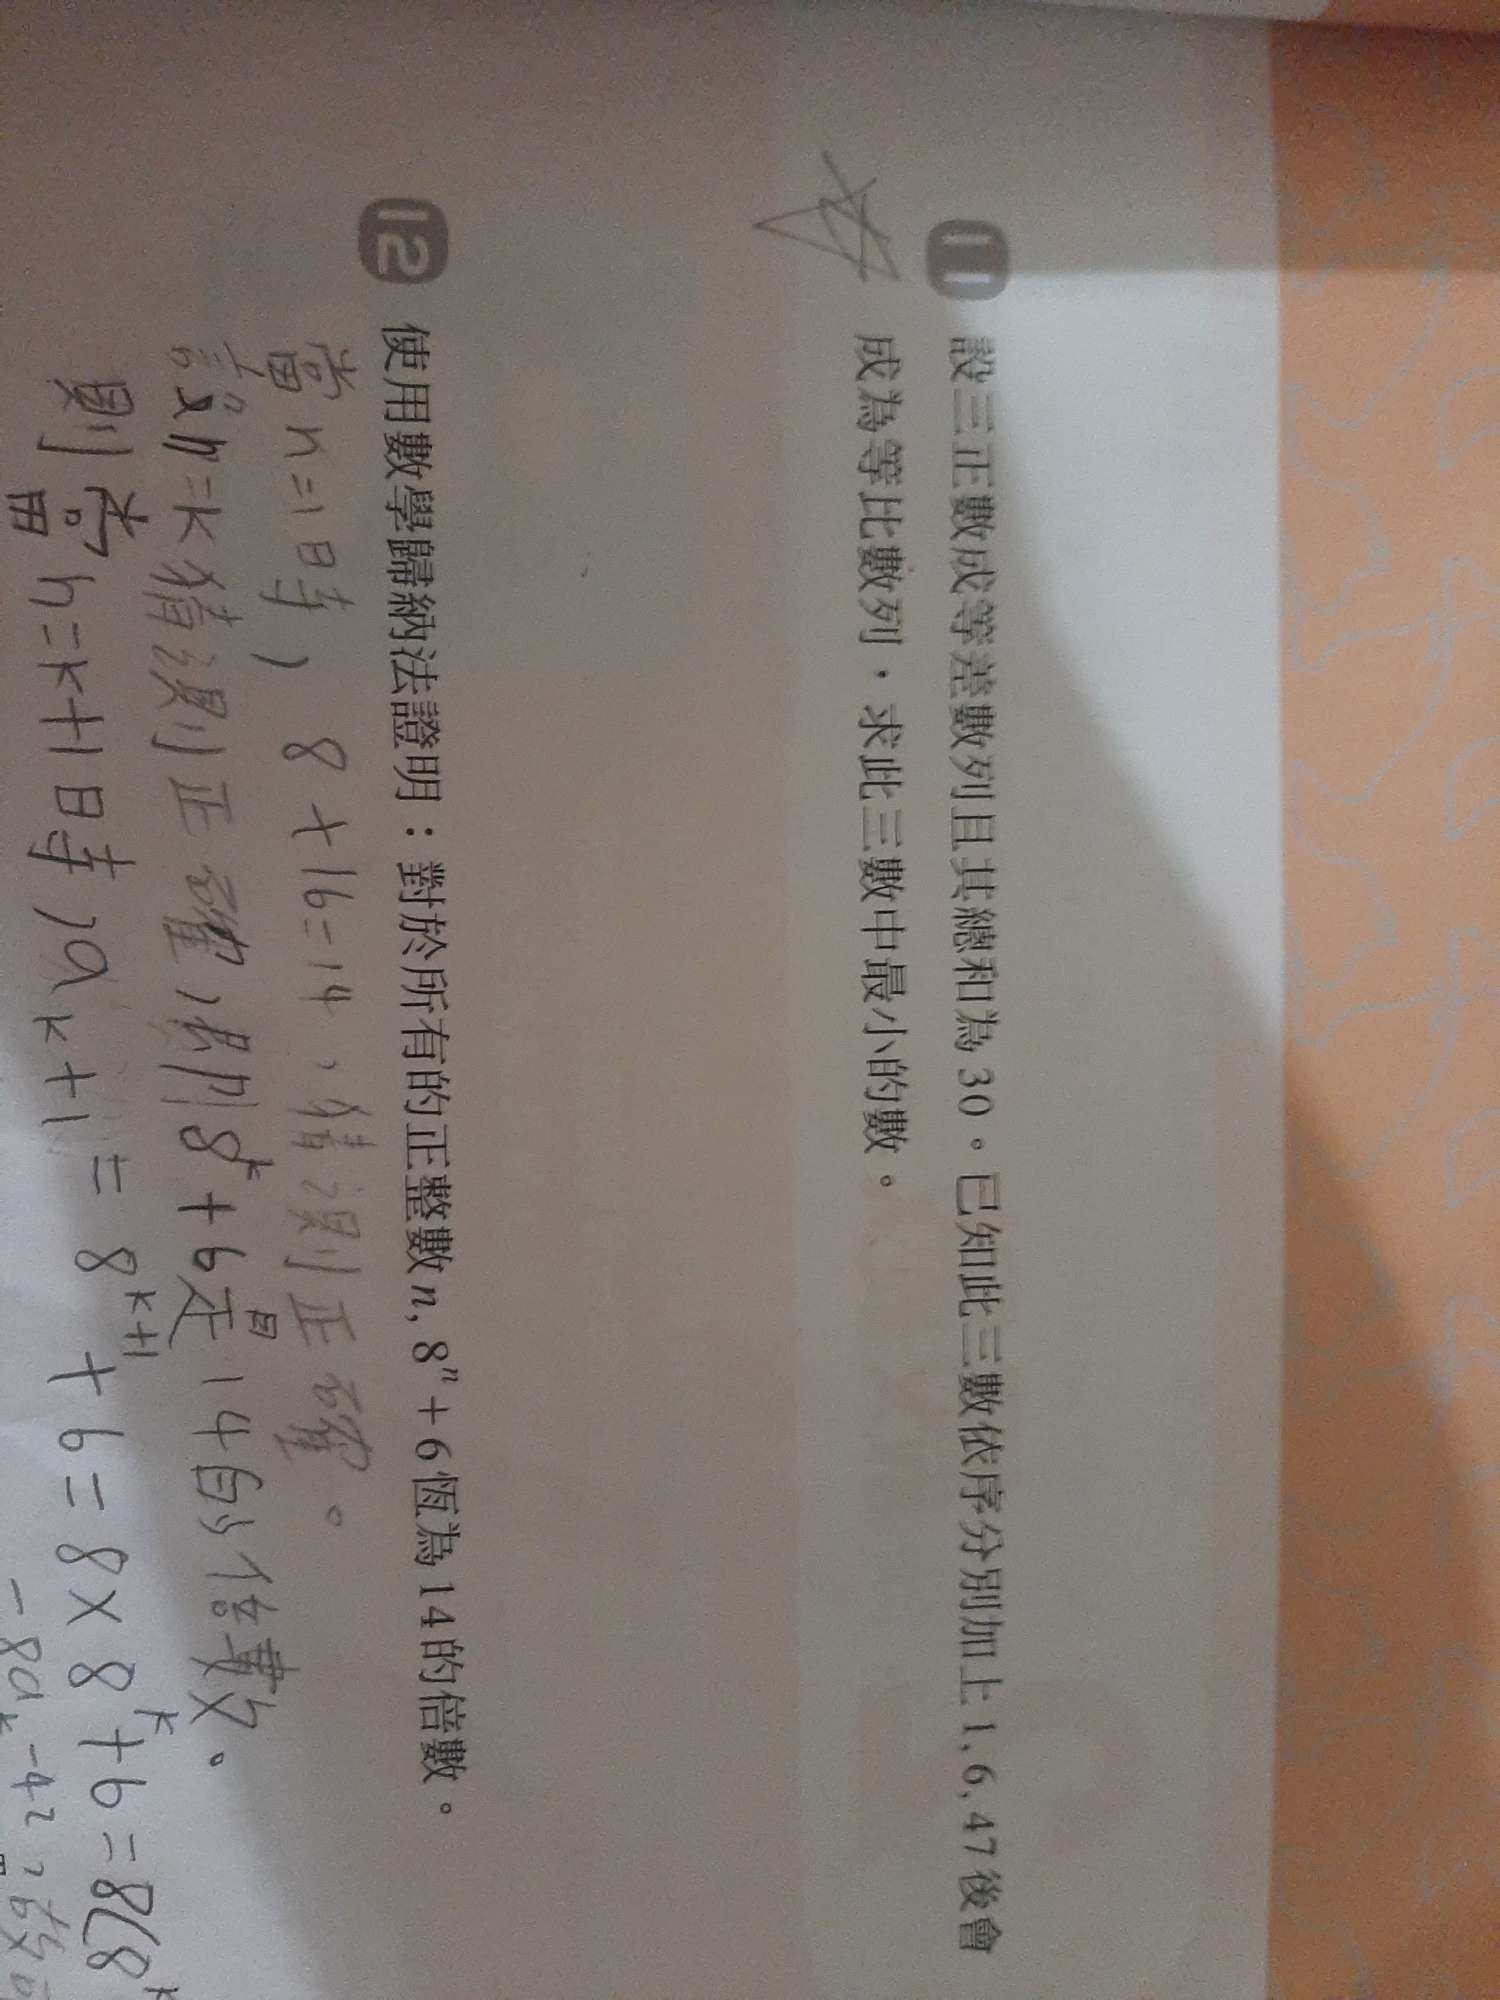 11 設三正數成等差數列且其總和為 30。已知此三數依序分別加上 1, 6, 47 後會
成為等比數列,求此三數中最小的數。
12 使用數學歸納法證明:對於所有的正整數 n, 8ⁿ + 6 恆為 14 的倍數。
當 n=1 時, 8+6=14,猜測正確。
設 n=k 猜測正確,則 8ᵏ+6 是 14 的倍數。
則當 n=k+1 時, aₖ₊₁ = 8ᵏ⁺¹ + 6 = 8×8ᵏ+6 = 8(8ᵏ
=8aₖ-42,